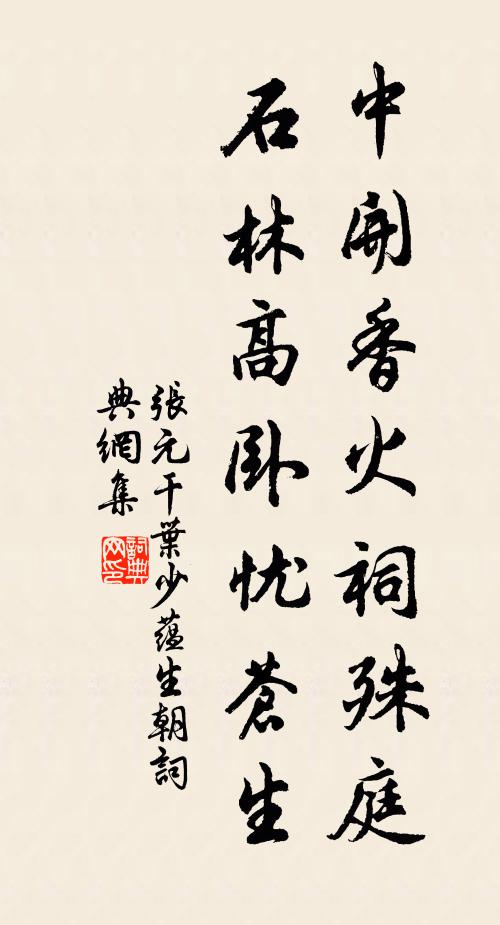 中開香火祠殊庭
石林高卧忧蒼生
張元干葉少蘊生朝詞
典網集
詞典网印